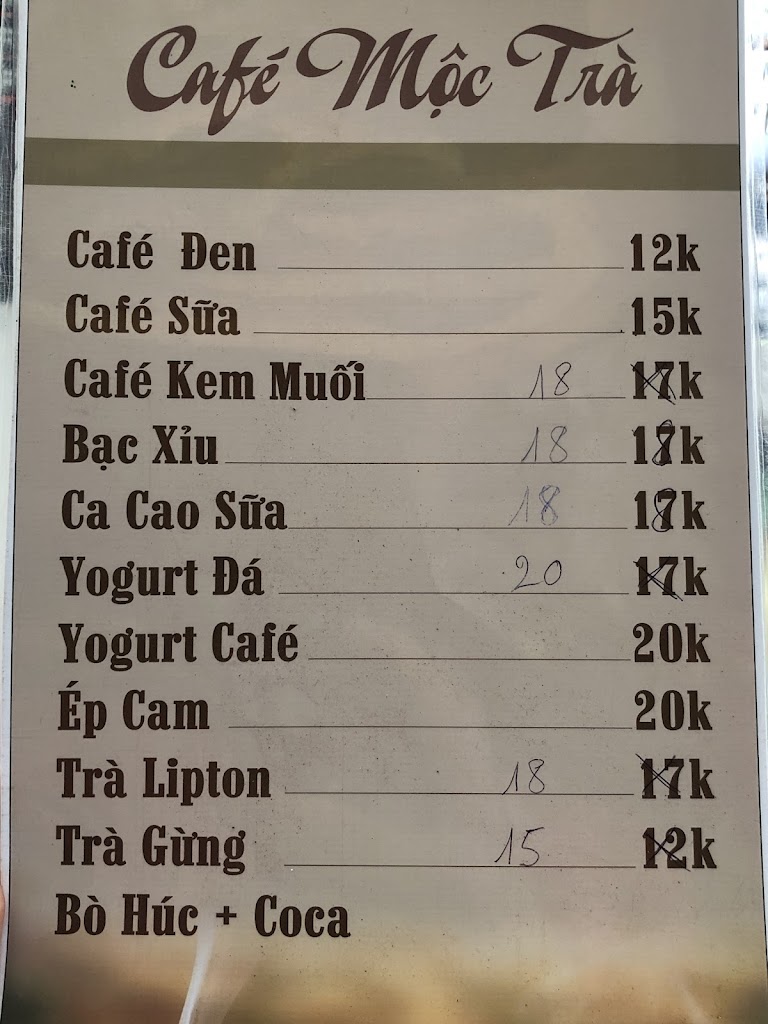 Café Mộc Trà
Café Đen 12k
Café Sữa 15k
Café Kem Muối 18 17k
Bạc Xỉu 18 17k
Ca Cao Sữa 18 17k
Yogurt Đá 20 17k
Yogurt Café 20k
Ép Cam 20k
Trà Lipton 18 17k
Trà Gừng 15 12k
Bò Húc + Coca